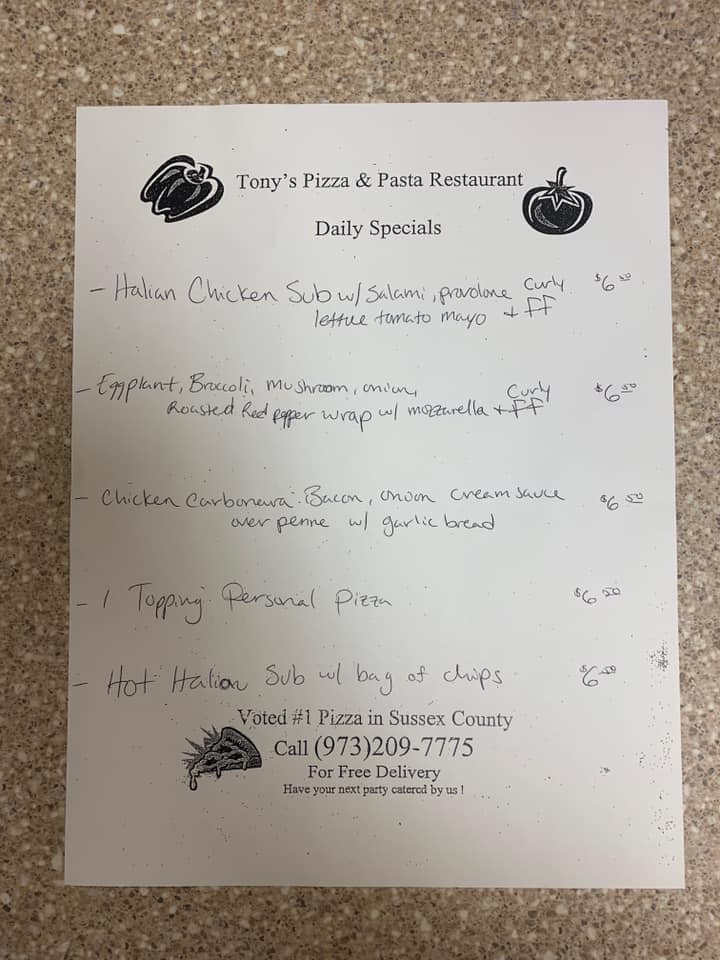 Tony's Pizza & Pasta Restaurant
Daily Specials
- Italian Chicken Sub w/ Salami, provolone Curly $6.50
lettuce tomato mayo + FF
- Eggplant, Broccoli, Mushroom, onion, Curly $6.50
Roasted Red pepper wrap w/ mozzarella + FF
- Chicken Carbonara: Bacon, onion cream sauce $6.50
over penne w/ garlic bread
- 1 Topping Personal Pizza $6.50
- Hot Italian Sub w/ bag of chips $6.50
Voted #1 Pizza in Sussex County
Call (973)209-7775
For Free Delivery
Have your next party catered by us !